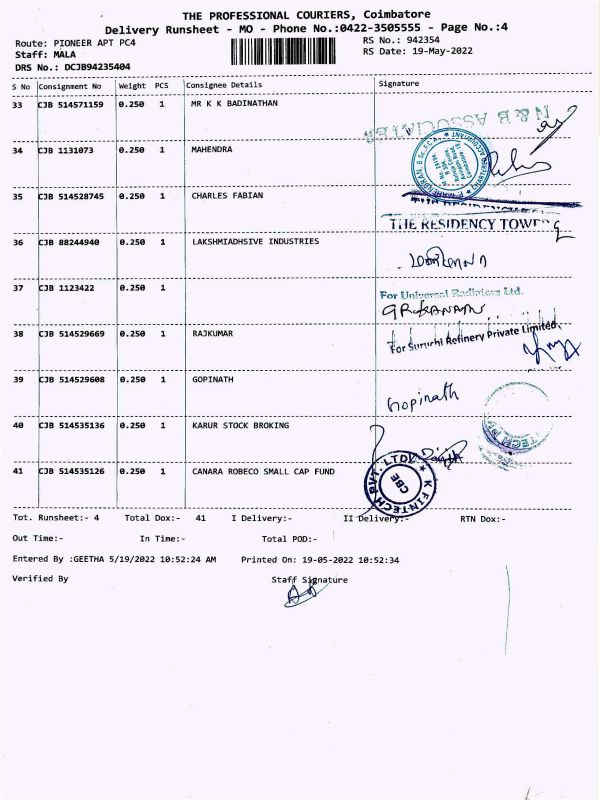 THE PROFESSIONAL COURIERS, Coimbatore
Delivery Runsheet - MO - Phone No.:0422-3505555 - Page No.:4
Route: PIONEER APT PC4
RS No.: 942354
Staff: MALA
RS Date: 19-May-2022
DRS No.: DCJB94235404
S No Consignment No Weight PCS Consignee Details Signature
33 CJB 514571159 0.250 1 MR K K BADINATHAN
N & B ASSOCIATES
34 CJB 1131073 0.250 1 MAHENDRA
35 CJB 514528745 0.250 1 CHARLES FABIAN
THE RESIDENCY TOWE
36 CJB 88244940 0.250 1 LAKSHMIADHSIVE INDUSTRIES
37 CJB 1123422 0.250 1
For Universal Radiators Ltd.
38 CJB 514529669 0.250 1 RAJKUMAR
For Suruchi Refinery Private Limited
39 CJB 514529608 0.250 1 GOPINATH
Gopinath
40 CJB 514535136 0.250 1 KARUR STOCK BROKING
41 CJB 514535126 0.250 1 CANARA ROBECO SMALL CAP FUND
K FINTECH PVT. LTD.
CBE
Tot. Runsheet:- 4 Total Dox:- 41 I Delivery:- II Delivery:- RTN Dox:-
Out Time:- In Time:- Total POD:-
Entered By :GEETHA 5/19/2022 10:52:24 AM Printed On: 19-05-2022 10:52:34
Verified By Staff Signature